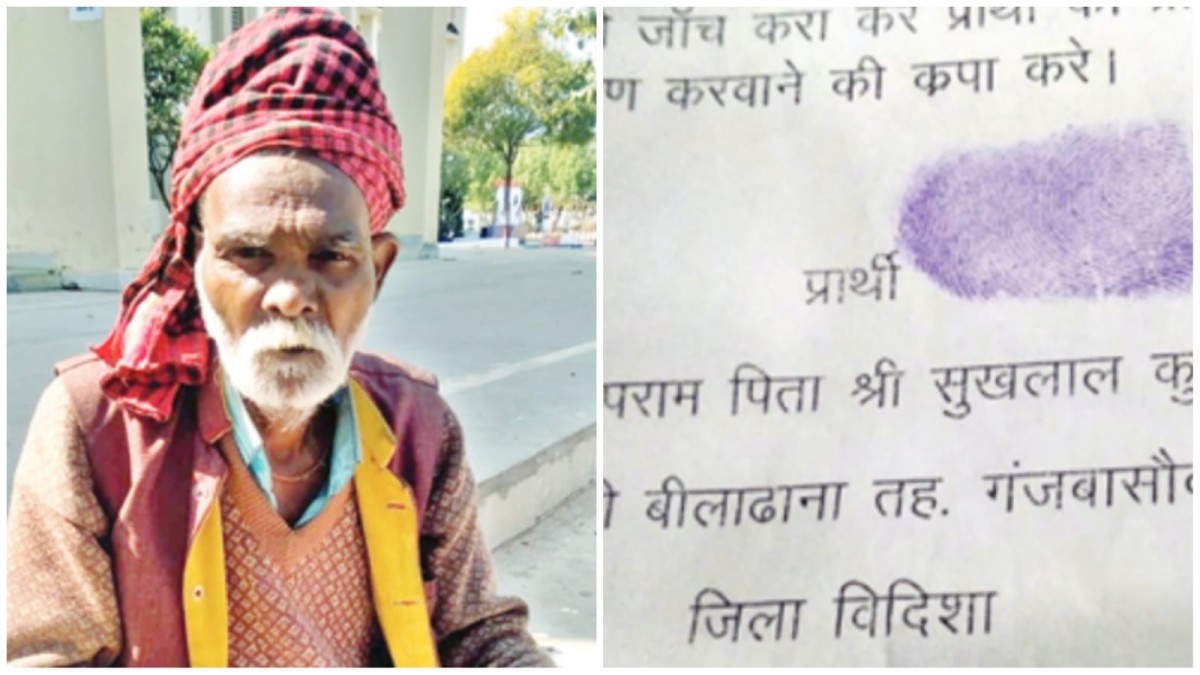 जाँच करा कर प्रार्थी
ण करवाने की कृपा करे।
प्रार्थी
पराम पिता श्री सुखलाल
बीलाढाना तह. गंजबासौ
जिला विदिशा